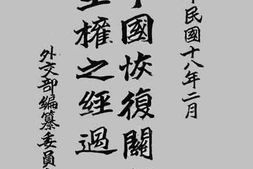 民國十八年二月
國恢復關
權之經過
外交部編纂委員